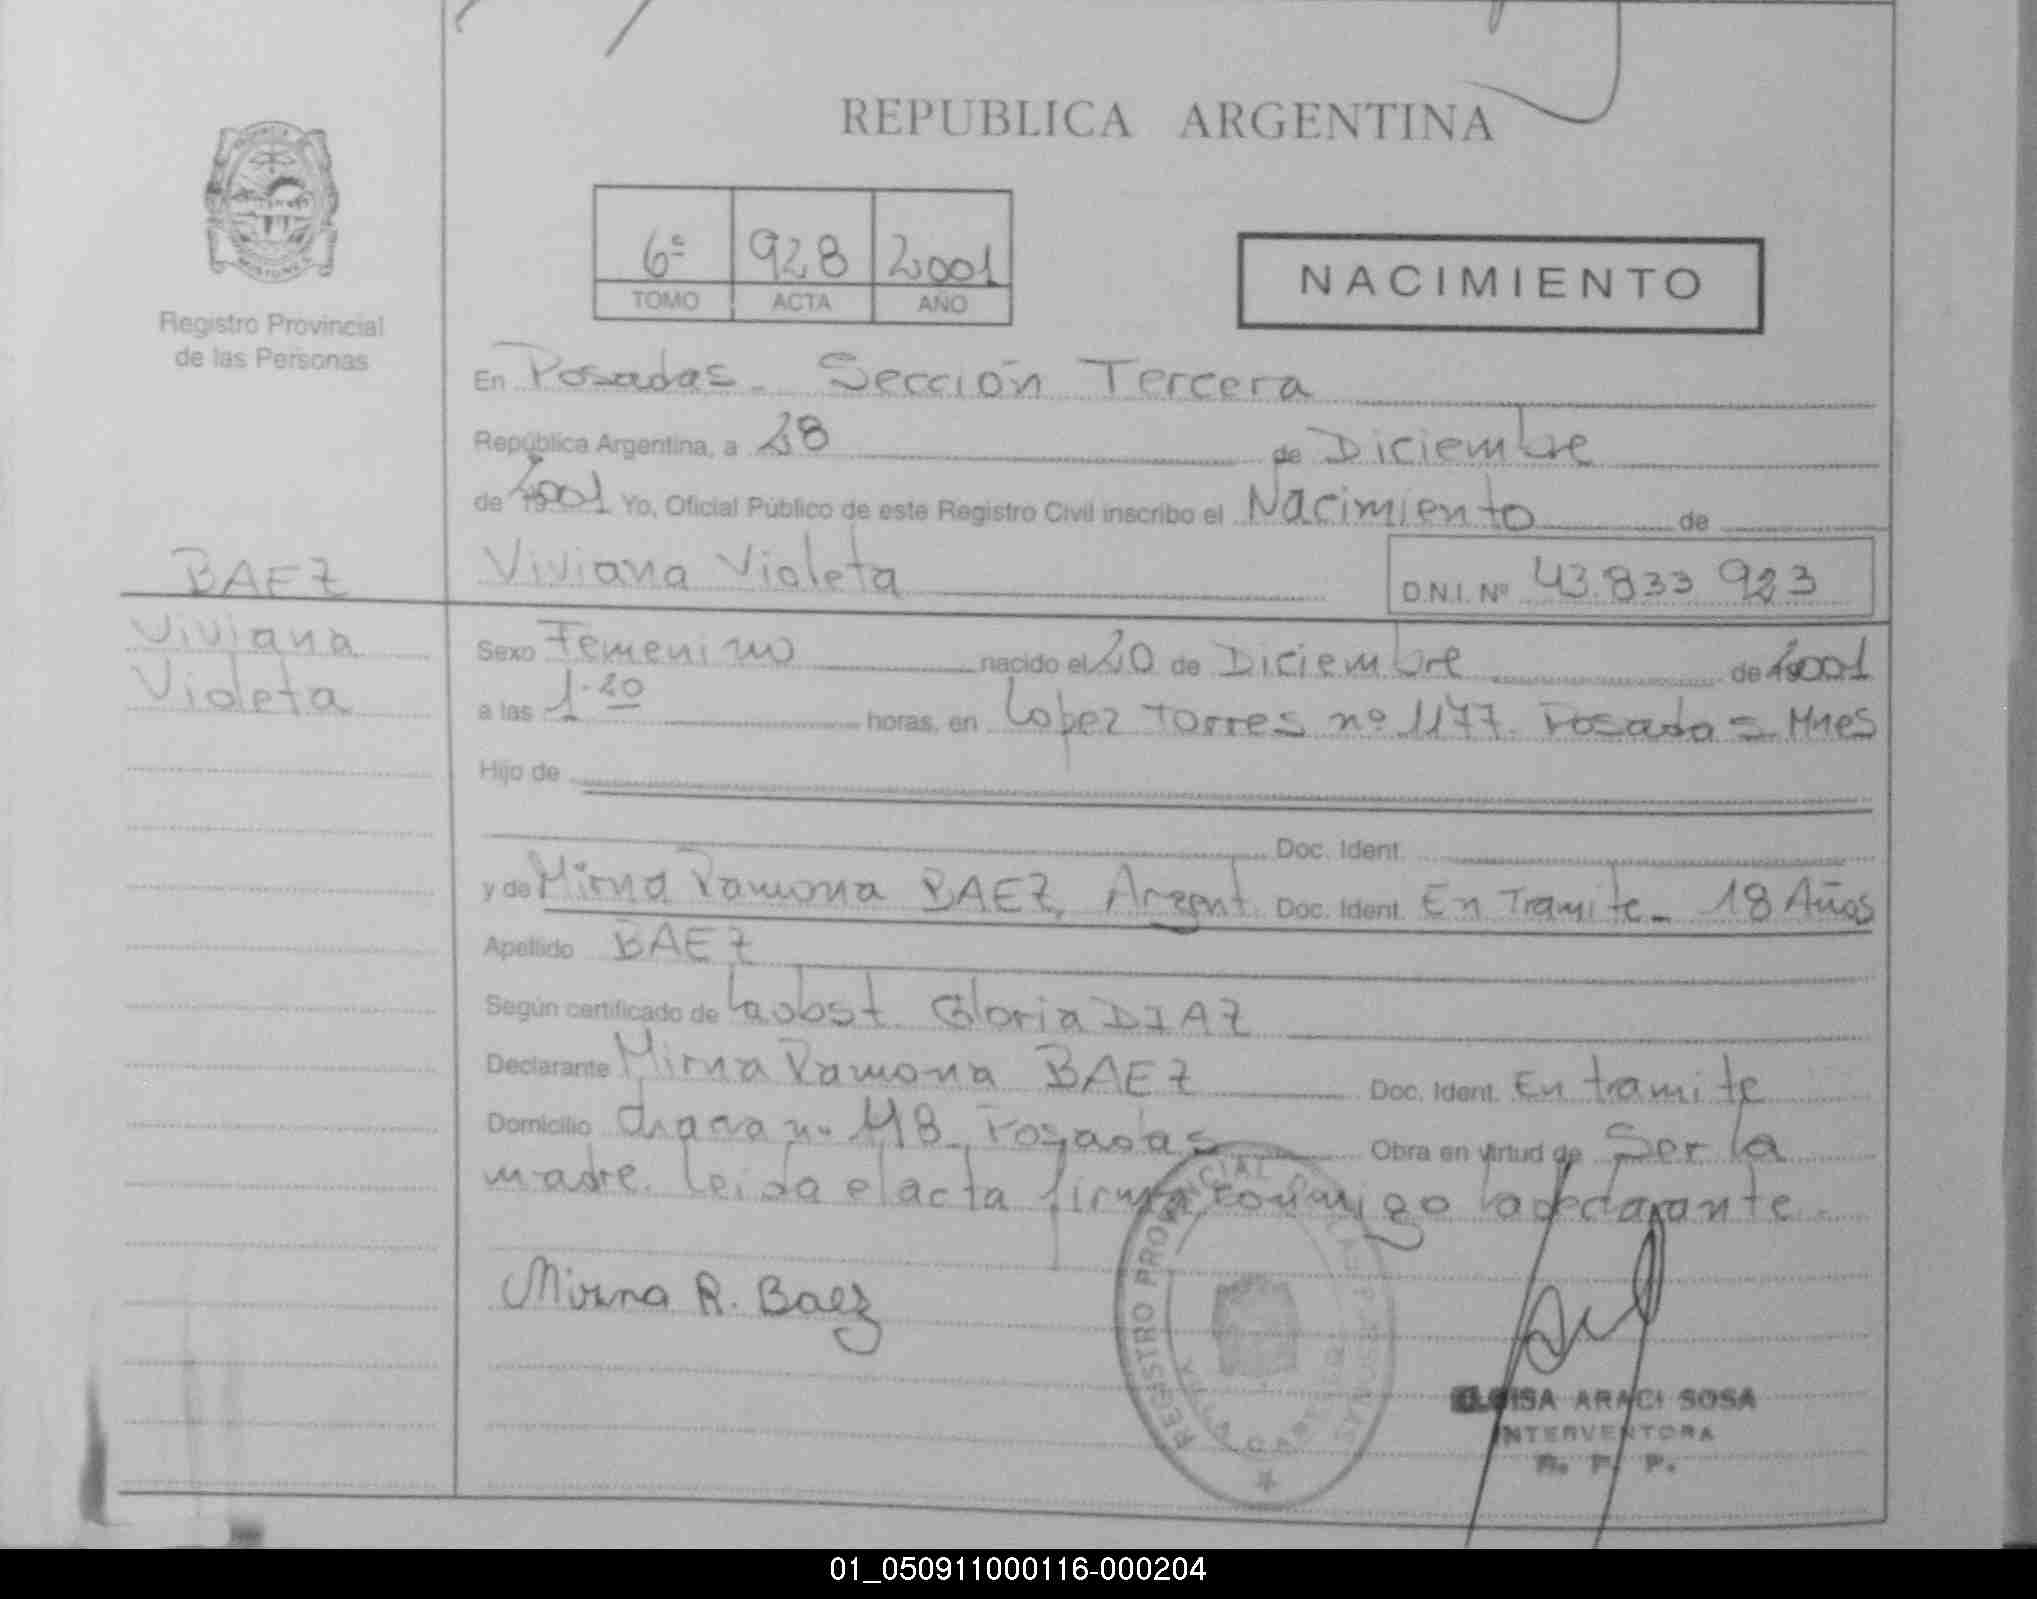 REPUBLICA ARGENTINA
MISIONES
Registro Provincial
de las Personas
6º 928 2001
TOMO ACTA AÑO
NACIMIENTO
En Posadas - Sección Tercera
República Argentina, a 28 de Diciembre
de 2001 Yo, Oficial Público de este Registro Civil inscribo el Nacimiento de
BAEZ
Viviana Violeta
D.N.I. Nº 43.833 923
Viviana
Violeta
Sexo Femenino nacido el 20 de Diciembre de 2001
a las 1.20 horas, en Lopez Torres nº 1177. Posadas Mnes
Hijo de
Doc. Ident.
y de Mirna Ramona BAEZ, Argent. Doc. Ident. En Tramite - 18 Años
Apellido BAEZ
Según certificado de la obst. Gloria DIAZ
Declarante Mirna Ramona BAEZ Doc. Ident. En tramite
Domicilio nº Posadas Obra en virtud de Ser la
madre. Leida el acta firma conmigo la declarante.
Mirna R. Baez
REGISTRO PROVINCIAL DE LAS PERSONAS
ELOISA ARACI SOSA
INTERVENTORA
R. P. P.
01_050911000116-000204